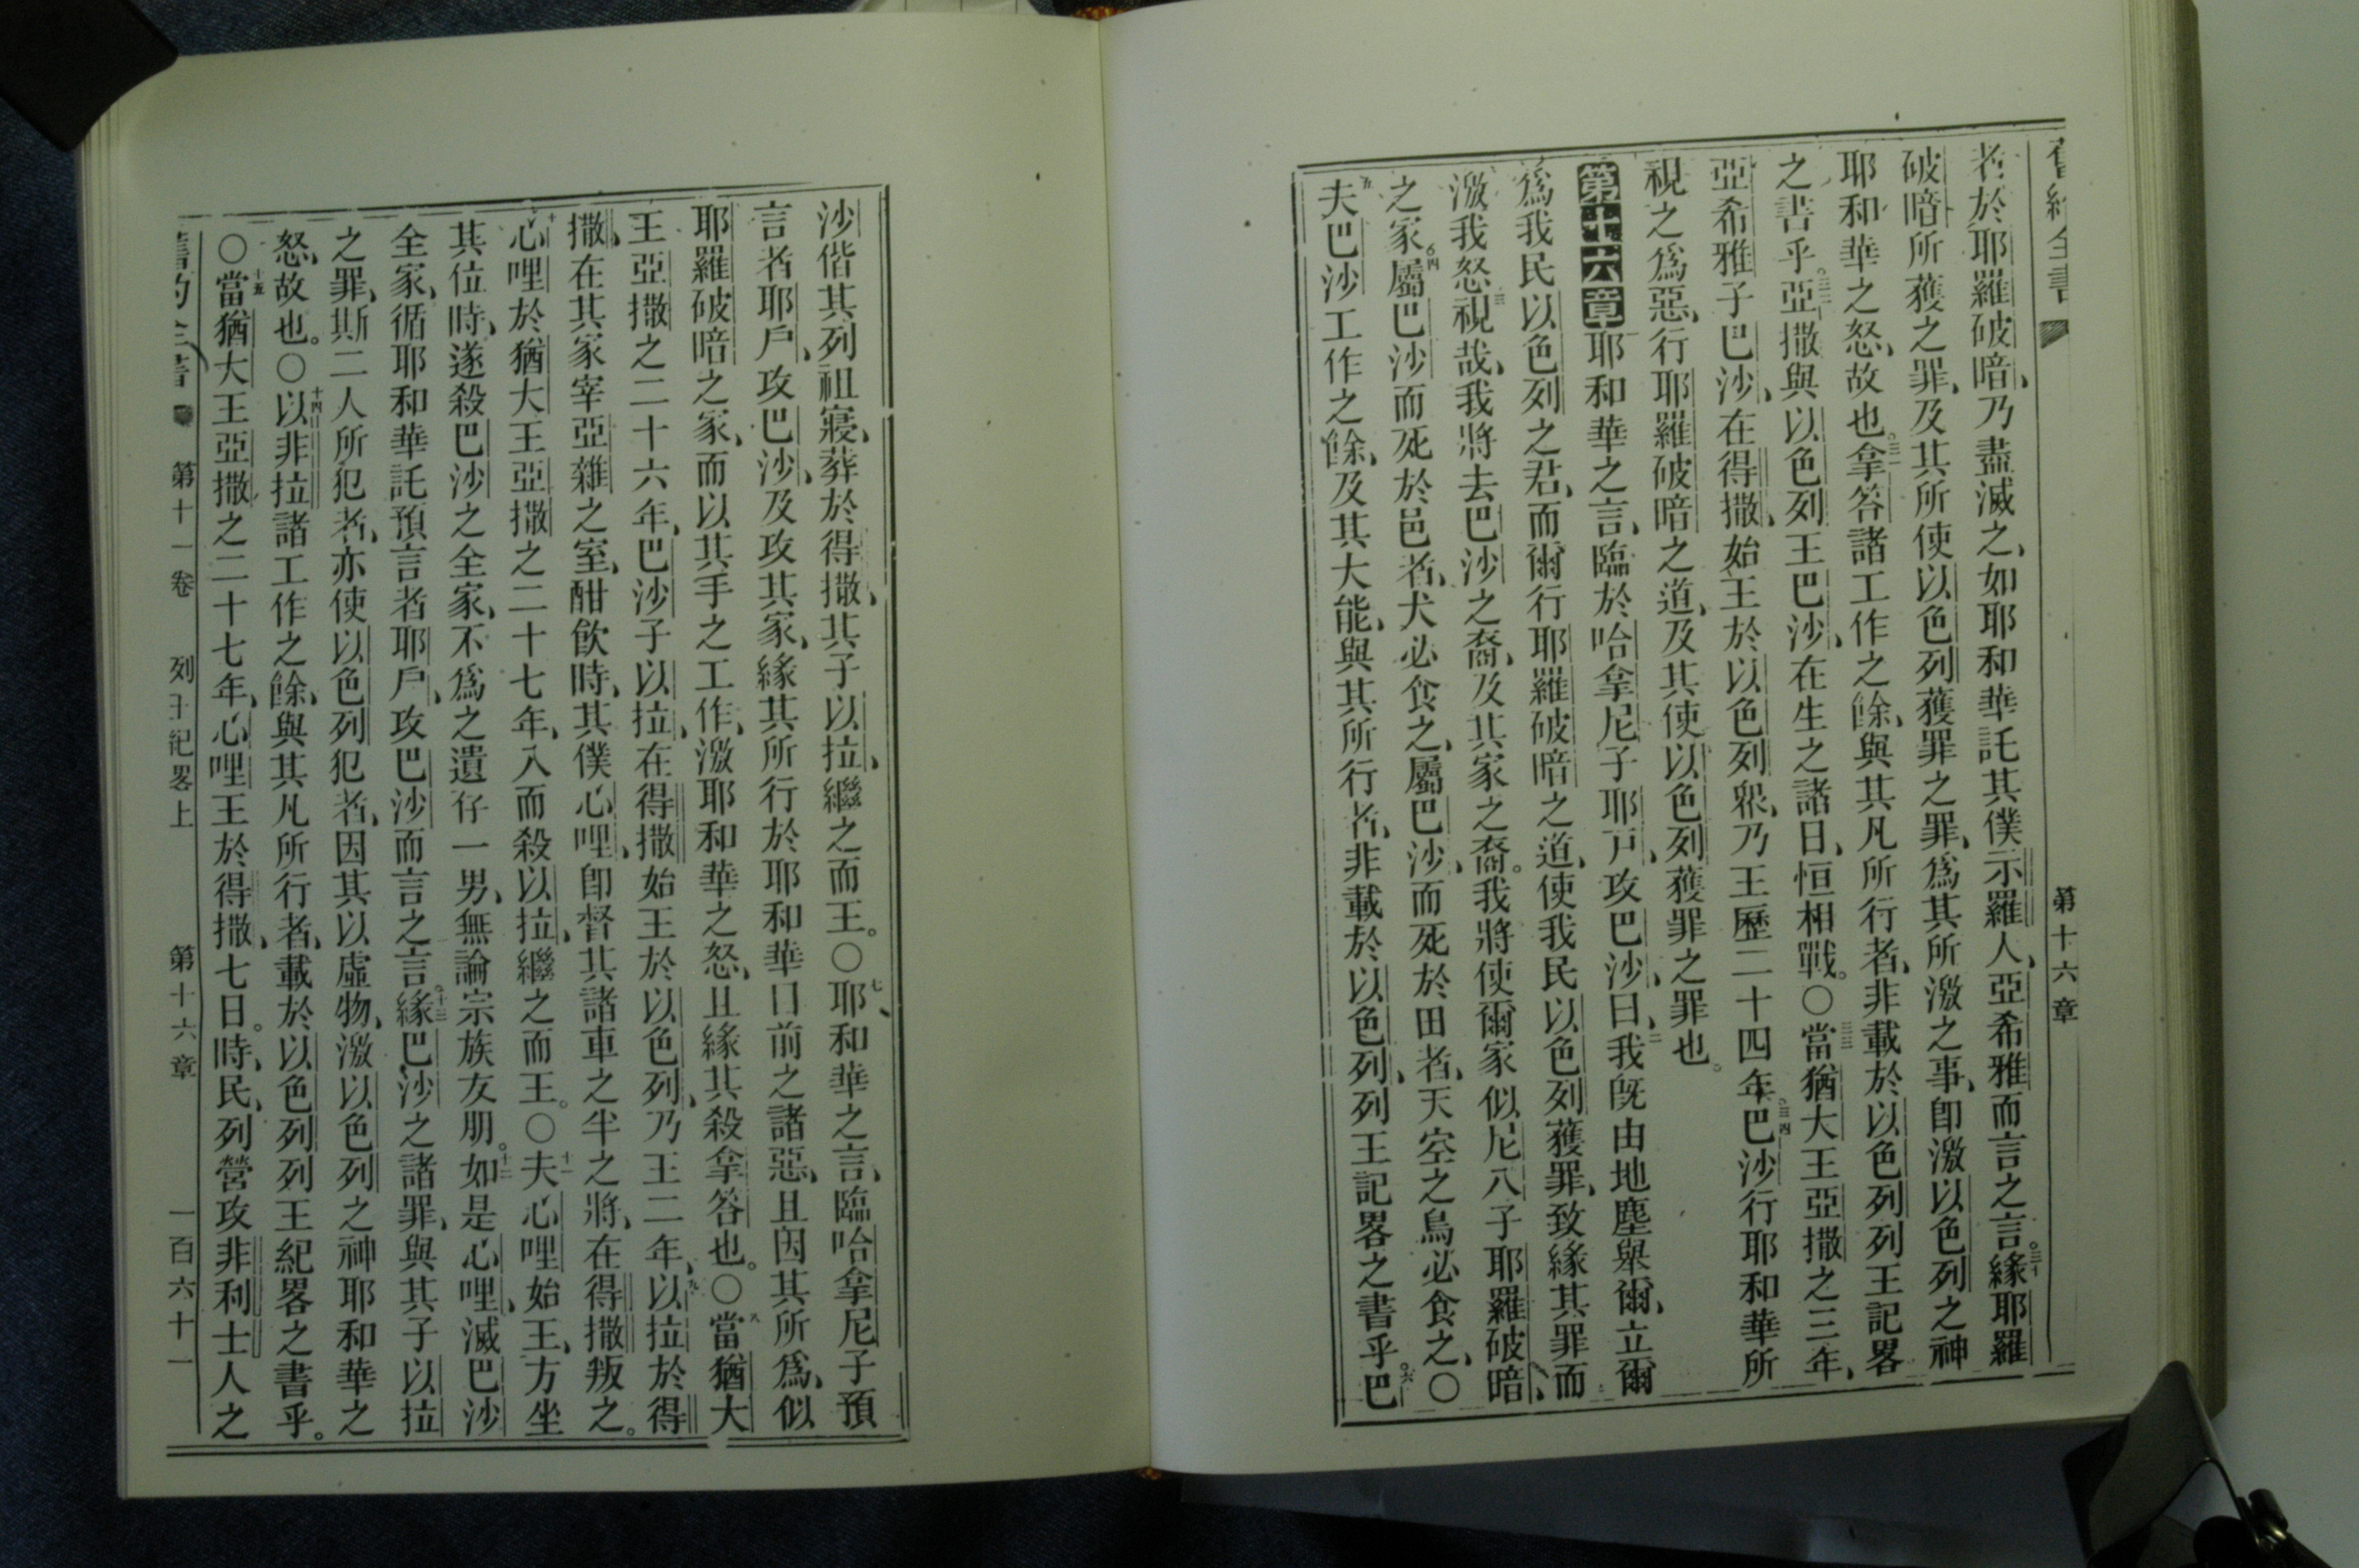 舊經全書 第十六章
者於耶羅破暗、乃盡滅之、如耶和華託其僕示羅人、亞希雅而言之言。三十緣耶羅
破暗所獲之罪、及其所使以色列獲罪之罪、爲其所激之事、卽激以色列之神
耶和華之怒、故也。三一拿答諸工作之餘、與其凡所行者、非載於以色列列王記畧
之書乎。三二亞撒與以色列王巴沙、在生之諸日、恒相戰。〇三三當猶大王亞撒之三年、
亞希雅子巴沙、在得撒、始王於以色列眾、乃王歷二十四年。三四巴沙行耶和華所
視之爲惡、行耶羅破暗之道、及其使以色列獲罪之罪也。
第十六章耶和華之言、臨於哈拿尼子耶戶、攻巴沙、曰、二我旣由地塵舉爾、立爾
爲我民以色列之君、而爾行耶羅破暗之道、使我民以色列獲罪、致緣其罪而
激我怒、三視哉、我將去巴沙之裔、及其家之裔。我將使爾家似尼八子耶羅破暗、
之家、四屬巴沙而死於邑者、犬必食之、屬巴沙、而死於田者、天空之鳥必食之、〇
五夫巴沙工作之餘、及其大能、與其所行者、非載於以色列、列王記畧之書乎。六巴
沙偕其列祖寢、葬於得撒、其子以拉、繼之而王。〇七耶和華之言、臨哈拿尼子預
言者耶戶、攻巴沙、及攻其家、緣其所行於耶和華目前之諸惡、且因其所爲、似
耶羅破暗之家、而以其手之工作、激耶和華之怒、且緣其殺拿答也。〇八當猶大
王亞撒之二十六年、巴沙子以拉、在得撒始王於以色列、乃王二年、九以拉於得
撒、在其家宰亞雜之室、酣飲時、其僕心哩、卽督其諸車之半之將、在得撒叛之。
十心哩於猶大王亞撒之二十七年、入而殺以拉、繼之而王。〇十一夫心哩始王、方坐
其位時、遂殺巴沙之全家、不爲之遺存一男、無論宗族友朋。十二如是心哩、滅巴沙
全家、循耶和華託預言者耶戶、攻巴沙而言之言。十三緣巴沙之諸罪、與其子以拉
之罪、斯二人所犯者、亦使以色列犯者、因其以虛物、激以色列之神耶和華之
怒、故也。〇十四以非拉諸工作之餘、與其凡所行者、載於以色列列王紀畧之書乎。
〇十五當猶大王亞撒之二十七年、心哩王於得撒、七日。時、民、列營攻非利士人之
舊約全書 第十一卷 列王紀畧上 第十六章 一百六十一